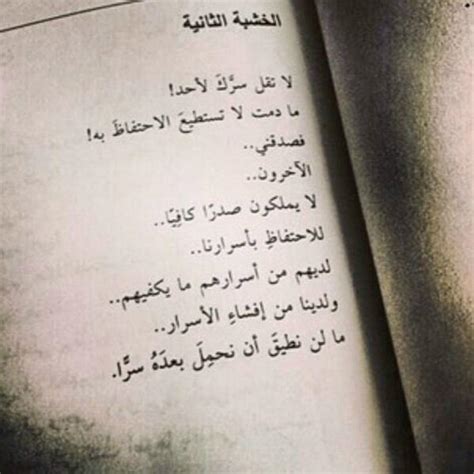 الخشبة الثانية
لا تقل سرَّكَ لأحد!
ما دمت لا تستطيعَ الاحتفاظَ به!
فصدقني..
الآخرون..
لا يملكون صدرًا كافِيًا..
للاحتفاظِ بأسرارنا..
لديهم من أسرارهم ما يكفيهم..
ولدينا من إفشاءِ الأسرار..
ما لن نطيقَ أن نحمِلَ بعدَهُ سرًّا.